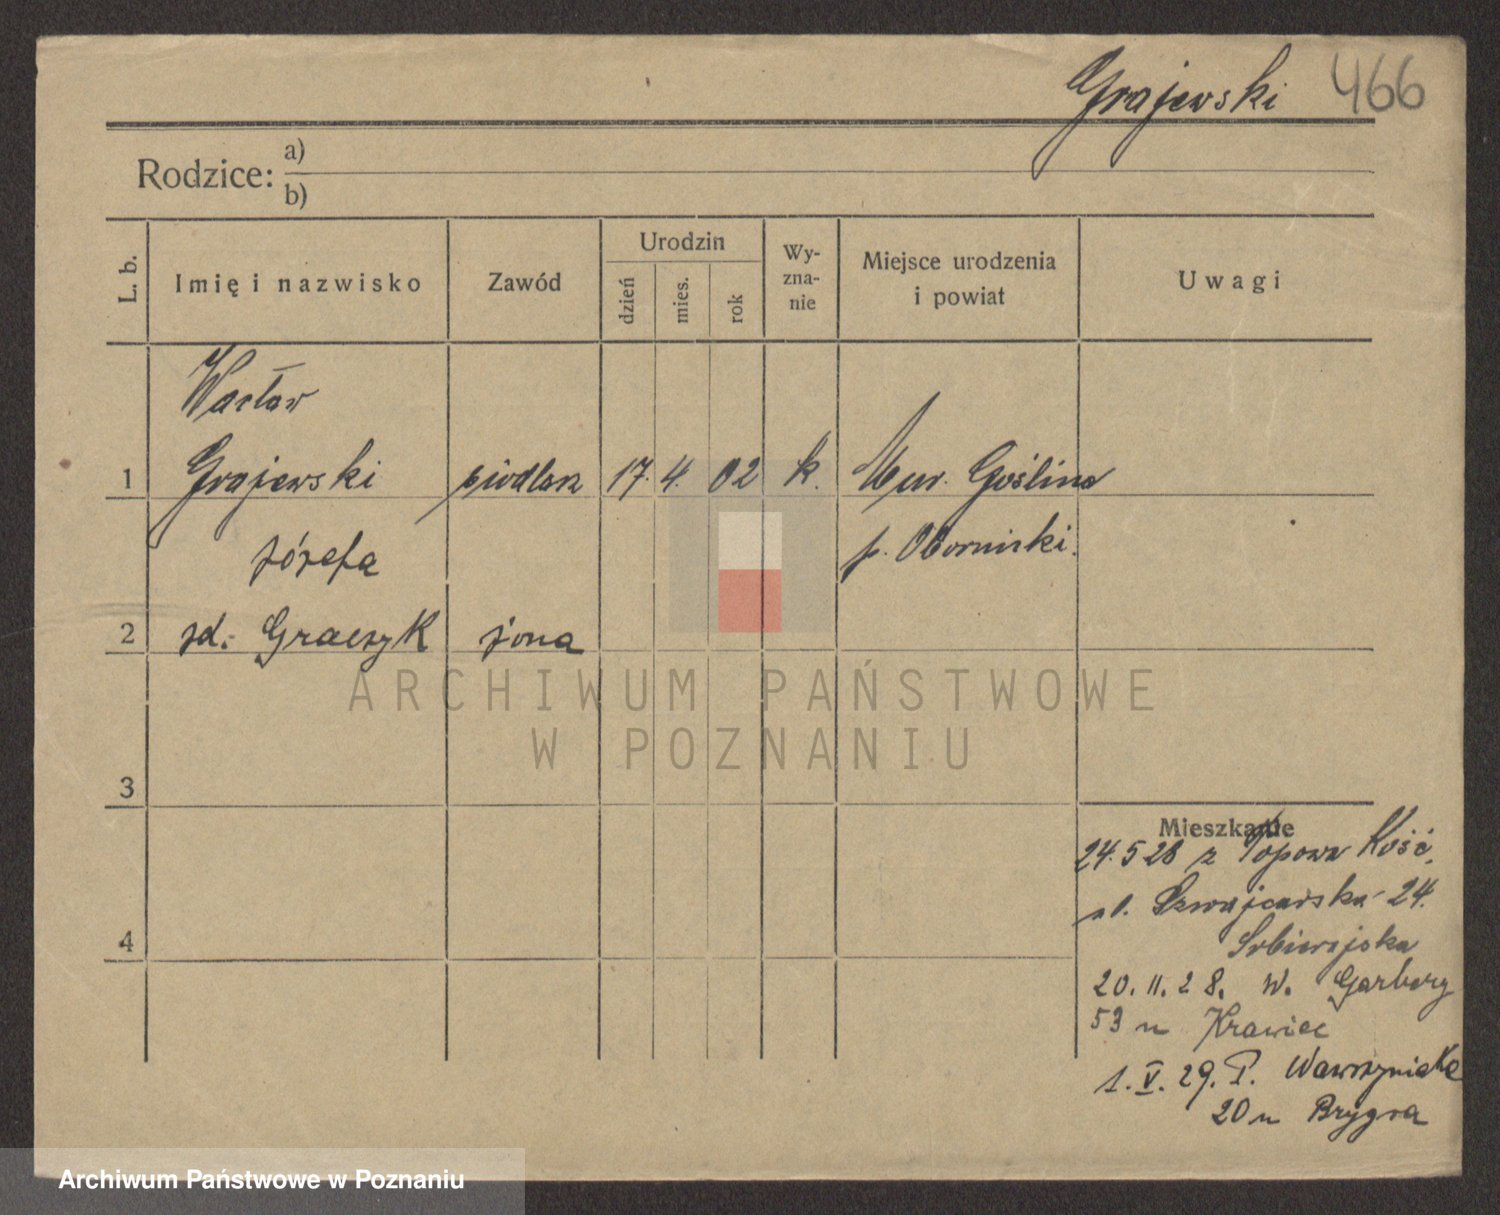 Grajewski 466
Rodzice: a)
b)
L. b.
Imię i nazwisko
Zawód
Urodzin
dzień
mies.
rok
Wy-
zna-
nie
Miejsce urodzenia
i powiat
Uwagi
Wacław
1 Grajewski siodlarz 17. 4. 02 k. Mur. Goślina
Józefa p. Obornicki.
2 zd. Graczyk żona
ARCHIWUM PAŃSTWOWE
W POZNANIU
3
Mieszkanie
24. 5 28 z Popowa Kość.
ul. Szwajcarska 24.
4
20. 11. 28. W. Garbary
53 u Krawiec
1. V. 29. P. Wawrzyniaka
20 u Brygra
Archiwum Państwowe w Poznaniu